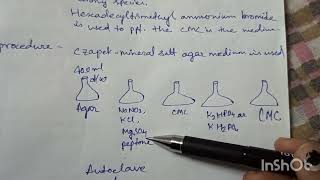 species.
Hexadecyltrimethyl ammonium bromide
is used to ppt. the CMC in the medium
procedure - Czapek-mineral salt agar medium is used
400 ml
d/w
Agar
NaNO3,
KCl,
MgSO4
peptone
CMC
K2HPO4 or
KH2PO4
CMC
Autoclave
InShOt